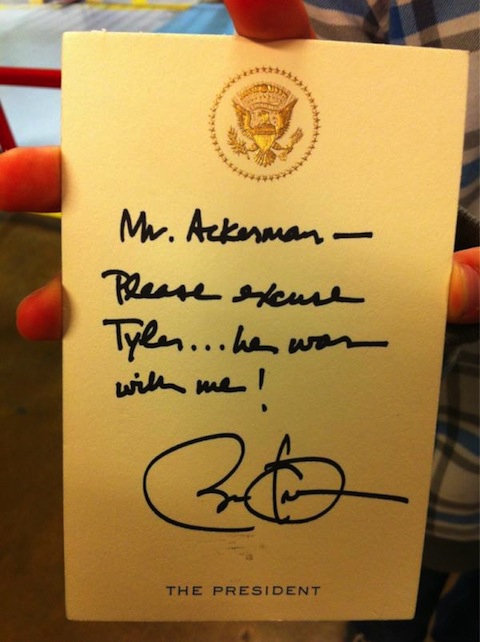 Mr. Ackerman —
Please excuse
Tyler...he was
with me!
THE PRESIDENT